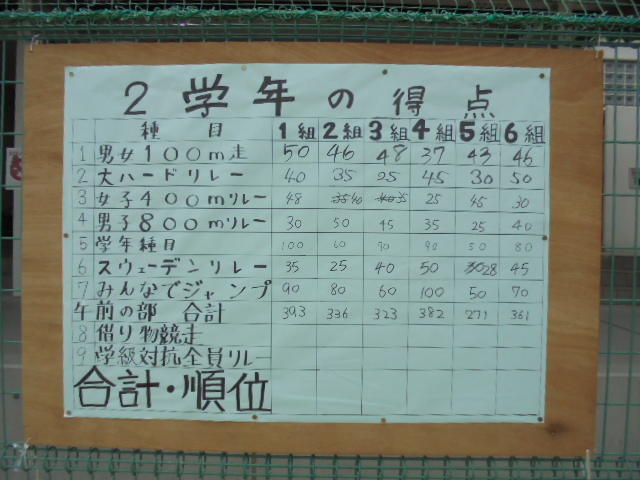 2学年の得点
種目 1組 2組 3組 4組 5組 6組
1 男女100m走 50 46 48 37 43 46
2 大ハードリレー 40 35 25 45 30 50
3 女子400mリレー 48 40 35 25 45 30
4 男子800mリレー 30 50 45 35 25 40
5 学年種目 100 60 70 90 50 80
6 スウェーデンリレー 35 25 40 50 28 45
7 みんなでジャンプ 90 80 60 100 50 70
午前の部 合計 393 336 323 382 271 361
8 借り物競走
9 学級対抗全員リレー
合計・順位